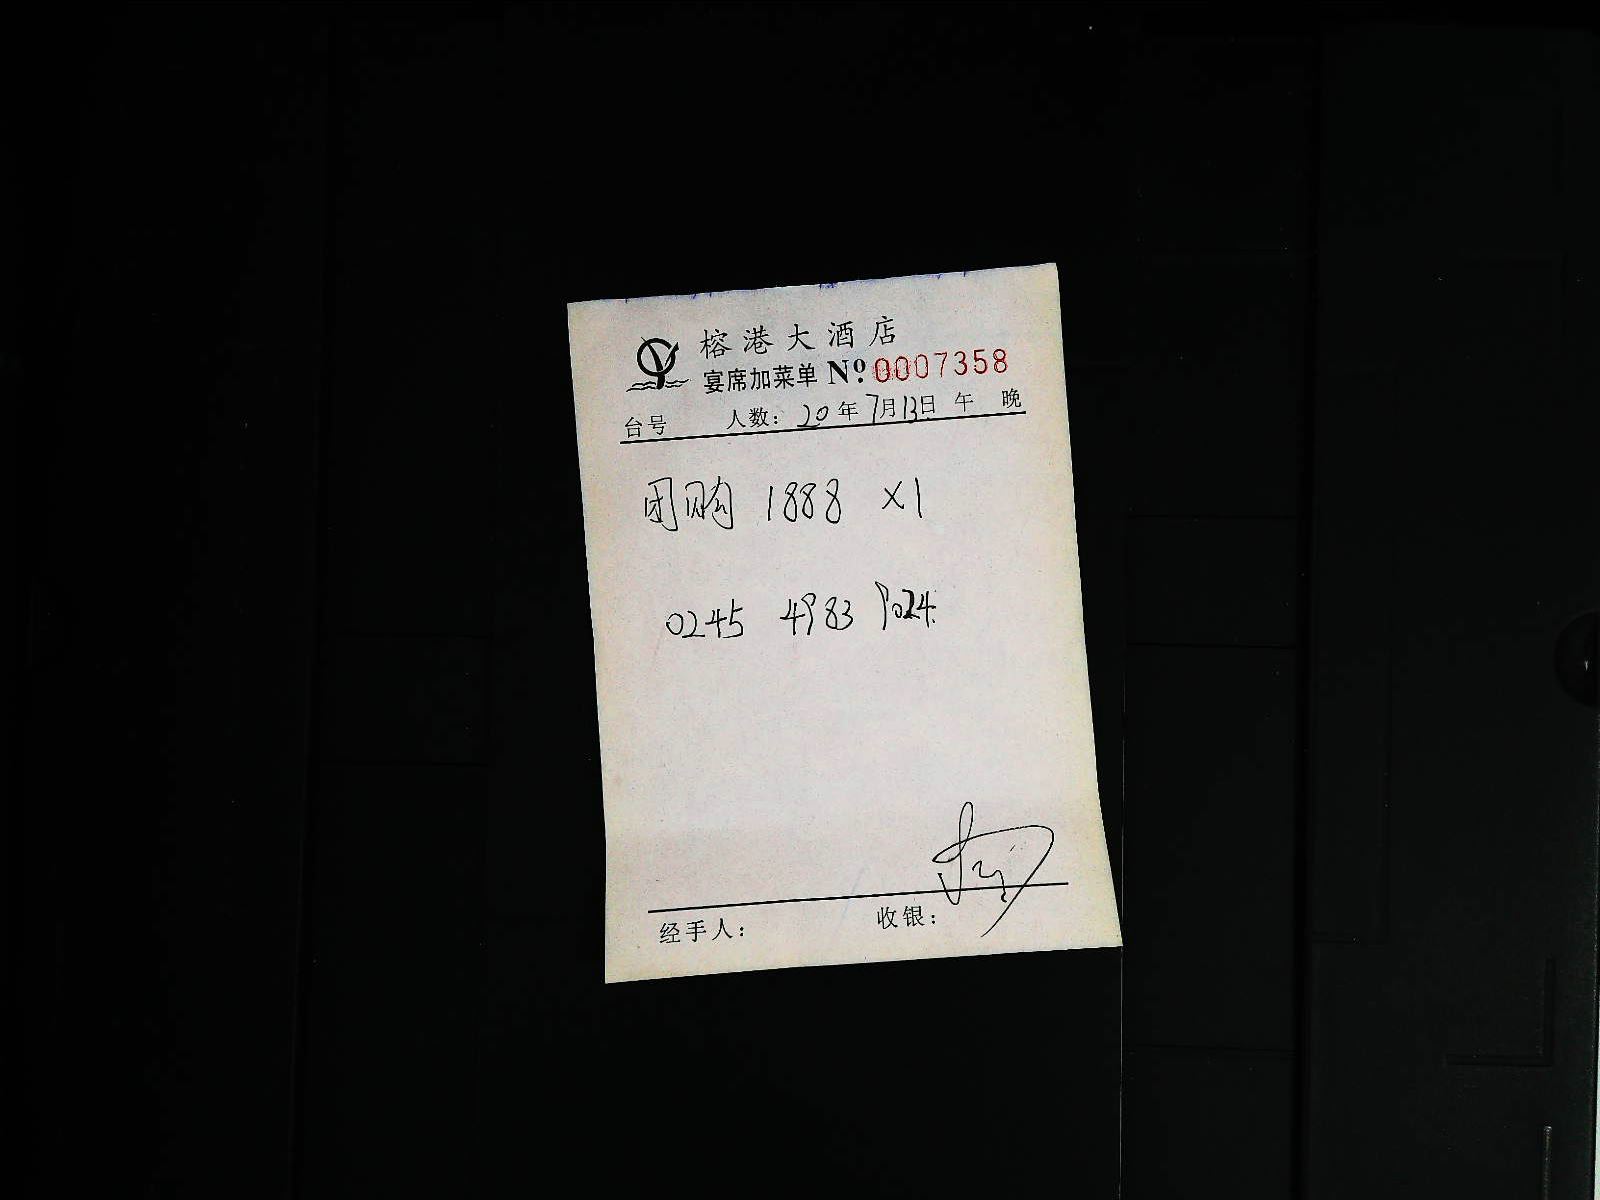 榕港大酒店
宴席加菜单 Nº 0007358
台号 人数: 20年7月13日 午 晚
团购 1888 ×1
0245 4983 9024
经手人: 收银: